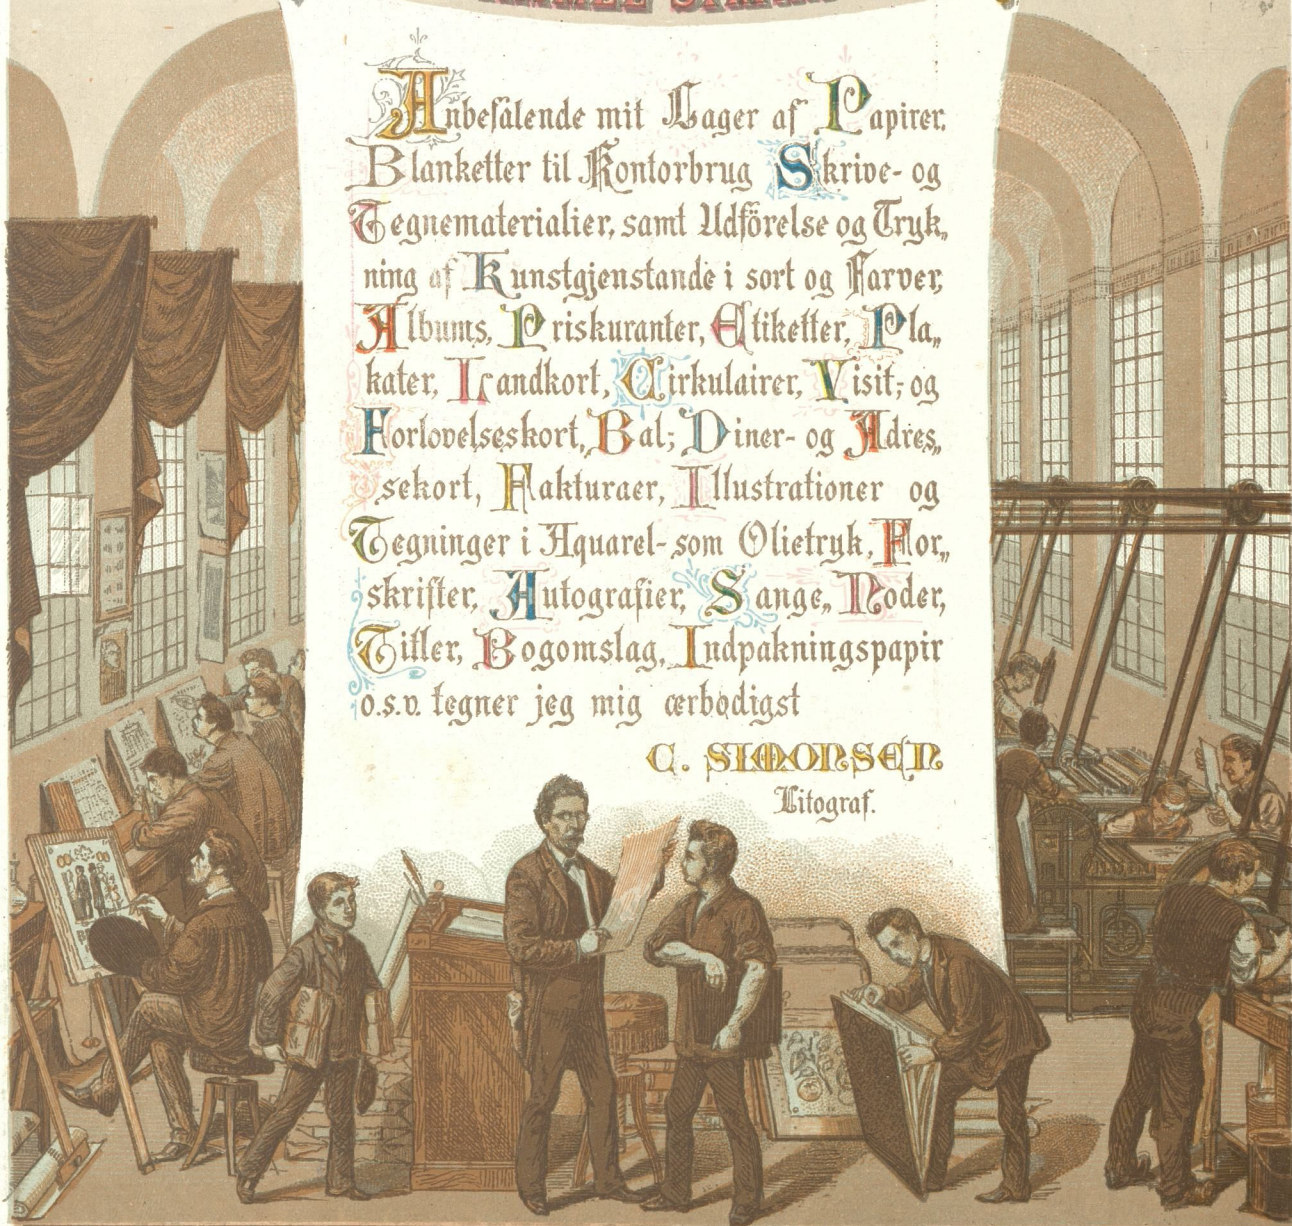 Anbefalende mit Lager af Papirer,
Blanketter til Kontorbrug Skrive- og
Tegnematerialier, samt Udförelse og Tryk„
ning af Kunstgjenstande i sort og Farver,
Albums, Priskuranter, Etiketter, Pla„
kater, Landkort, Cirkulairer, Visit,- og
Forlovelseskort, Bal,- Diner- og Adres„
sekort, Fakturaer, Illustrationer og
Tegninger i Aquarel- som Olietryk, For„
skrifter, Autografier, Sange„ Noder,
Titler, Bogomslag, Indpakningspapir
o.s.v. tegner jeg mig ærbødigst
C. SIMONSEN
Litograf.